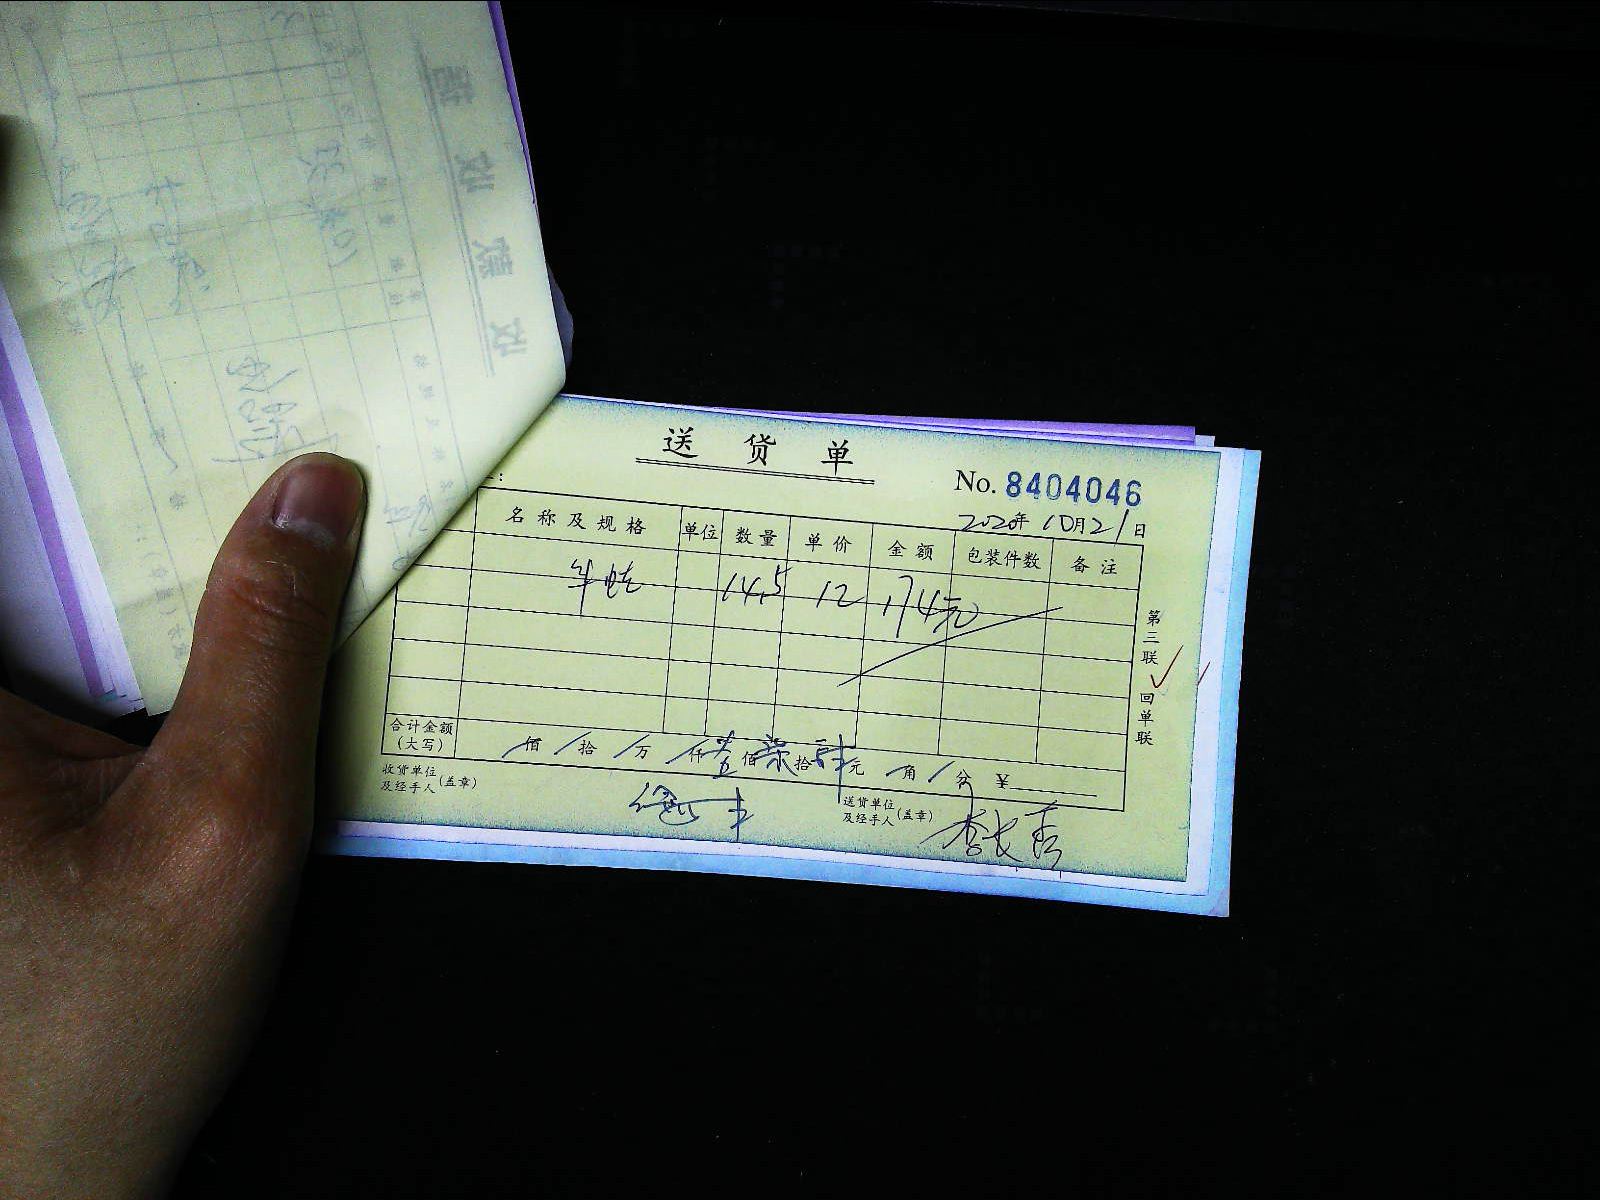 送货单
No. 8404046
2020年10月21日
名称及规格 单位 数量 单价 金额 包装件数 备注
牛蛙 14.5 12 174元
合计金额(大写) 佰 拾 万 仟 壹佰柒拾肆元 角 分 ¥
收货单位及经手人(盖章)
送货单位及经手人(盖章)
第三联 回单联